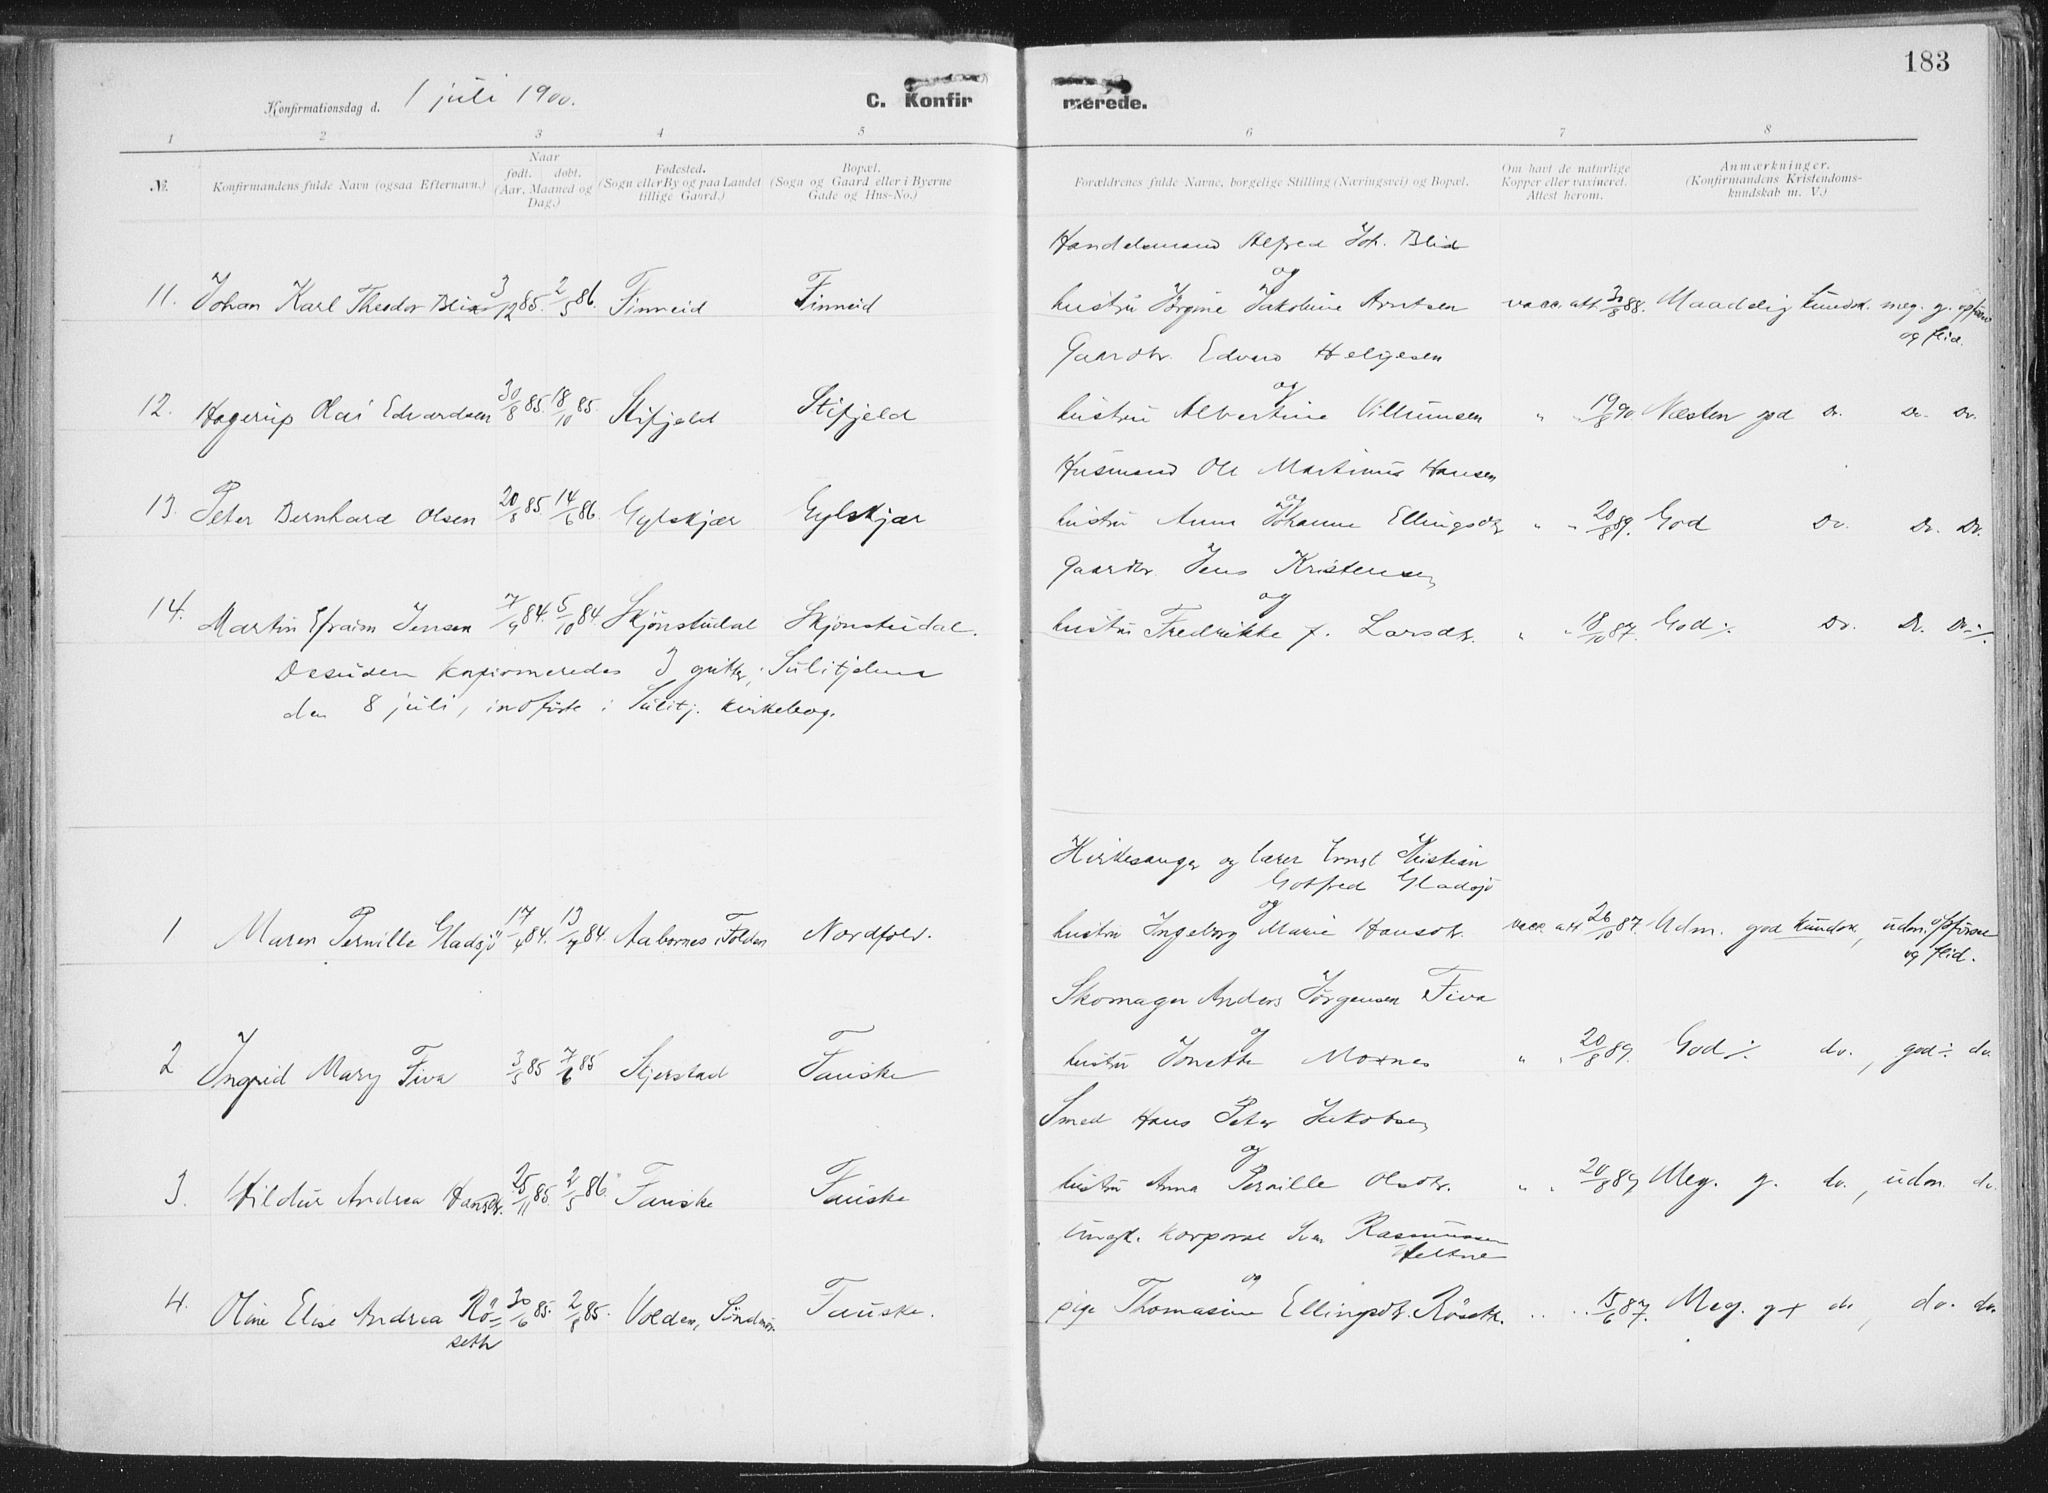 183
Konfirmationsdag d. 1 juli 1900.
C. Konfirmerede.
1 2 3 4 5 6 7 8
№. Konfirmandens fulde Navn (ogsaa Efternavn.) Naar født. døbt. (Aar, Maaned og Dag.) Fødested. (Sogn eller By og paa Landet tillige Gaard.) Bopæl. (Sogn og Gaard eller i Byerne Gade og Hus-No.) Forældrenes fulde Navne, borgelige Stilling (Næringsvei) og Bopæl. Om havt de naturlige Kopper eller vaxineret. Attest herom. Anmærkninger. (Konfirmandens Kristendomskundskab m. V.)
Handelsmand Alfred Joh. Blix
og
11. Johan Karl Theodor Blix 3/12 85. 2/5 86. Finneid Finneid hustru Jörgine Jakobine Arntsen vacc. att. 30/8 88. Maadelig kundsk. meg. g. opförsel
og flid.
Gaardbr. Edvard Helgesen
og
12. Hagerup Olai Edvardsen 30/8 85. 18/10 85. Stifjeld Stifjeld hustru Albertine Villumsen " " 19/8 90. Næsten god Do. Do. Do.
Husmand Ole Martinus Hansen
og
13. Peter Bernhard Olsen 20/8 85. 14/6 86. Gylskjær Gylskjær hustru Anna Johanne Ellingsdtr " " 20/8 89. God Do. Do. Do.
Gaardbr. Jens Kristensen
og
14. Martin Efraim Jensen 7/9 84. 5/10 84. Skjönstudal Skjönstudal. hustru Fredrikke f. Larsdtr. " " 18/10 87. God ./. Do. Do. Do ./.
Desuden konfirmeredes 3 gutter i Sulitjelma
den 8 juli, indförte i Sulitj. kirkebog.
Kirkesanger og lærer Ernst Kristian
Gotfred Gladsjö
og
1 Maren Pernille Gladsjö 17/4 84. 13/7 84. Aabornes, Folden Nordfold. hustru Ingeborg Marie Hansdtr. vacc. att 26/10 87. Udm. god kundsk, udm. opförsel
og flid.
Skomager Anders Jörgensen Fiva
og
2 Ingrid Mary Fiva 3/5 85 7/6 85 Skjerstad Fauske hustru Jonette Moxnes " " 20/8 89. God ./. do., god ./. do.
Smed Hans Peter Jakobsen
og
3. Hildur Andrea Hansdtr. 25/11 85. 2/5 86. Fauske Fauske hustru Anna Pernille Olsdtr. " " 20/8 89 Meg. g. do., udm. do.
ungk. korporal Iver Rasmussen
og
4. Oline Elise Andrea Rö=
seth 30/6 85. 2/8 85. Volden, Söndmör. Fauske. pige Thomasine Ellingsdtr. Röseth. " " 15/6 87. Meg. g + do, do. do.